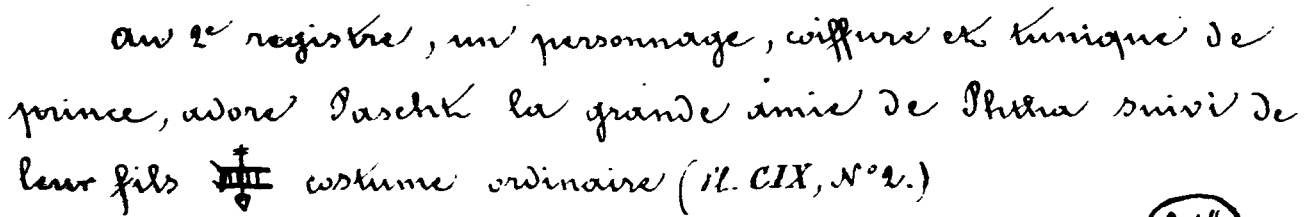 au 2e registre, un personnage, coiffure et tunique de
prince, adore Pascht la grande amie de Phtha suivi de
leur fils costume ordinaire (Pl. CIX, N°2.)